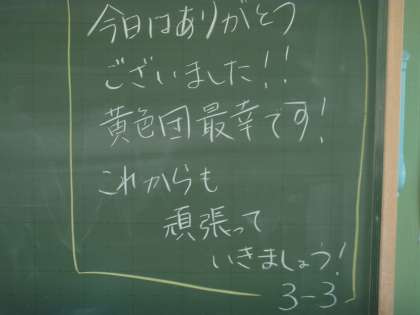 今日はありがとう
ございました!!
黄色団最幸です!
これからも
頑張って
いきましょう!
3-3